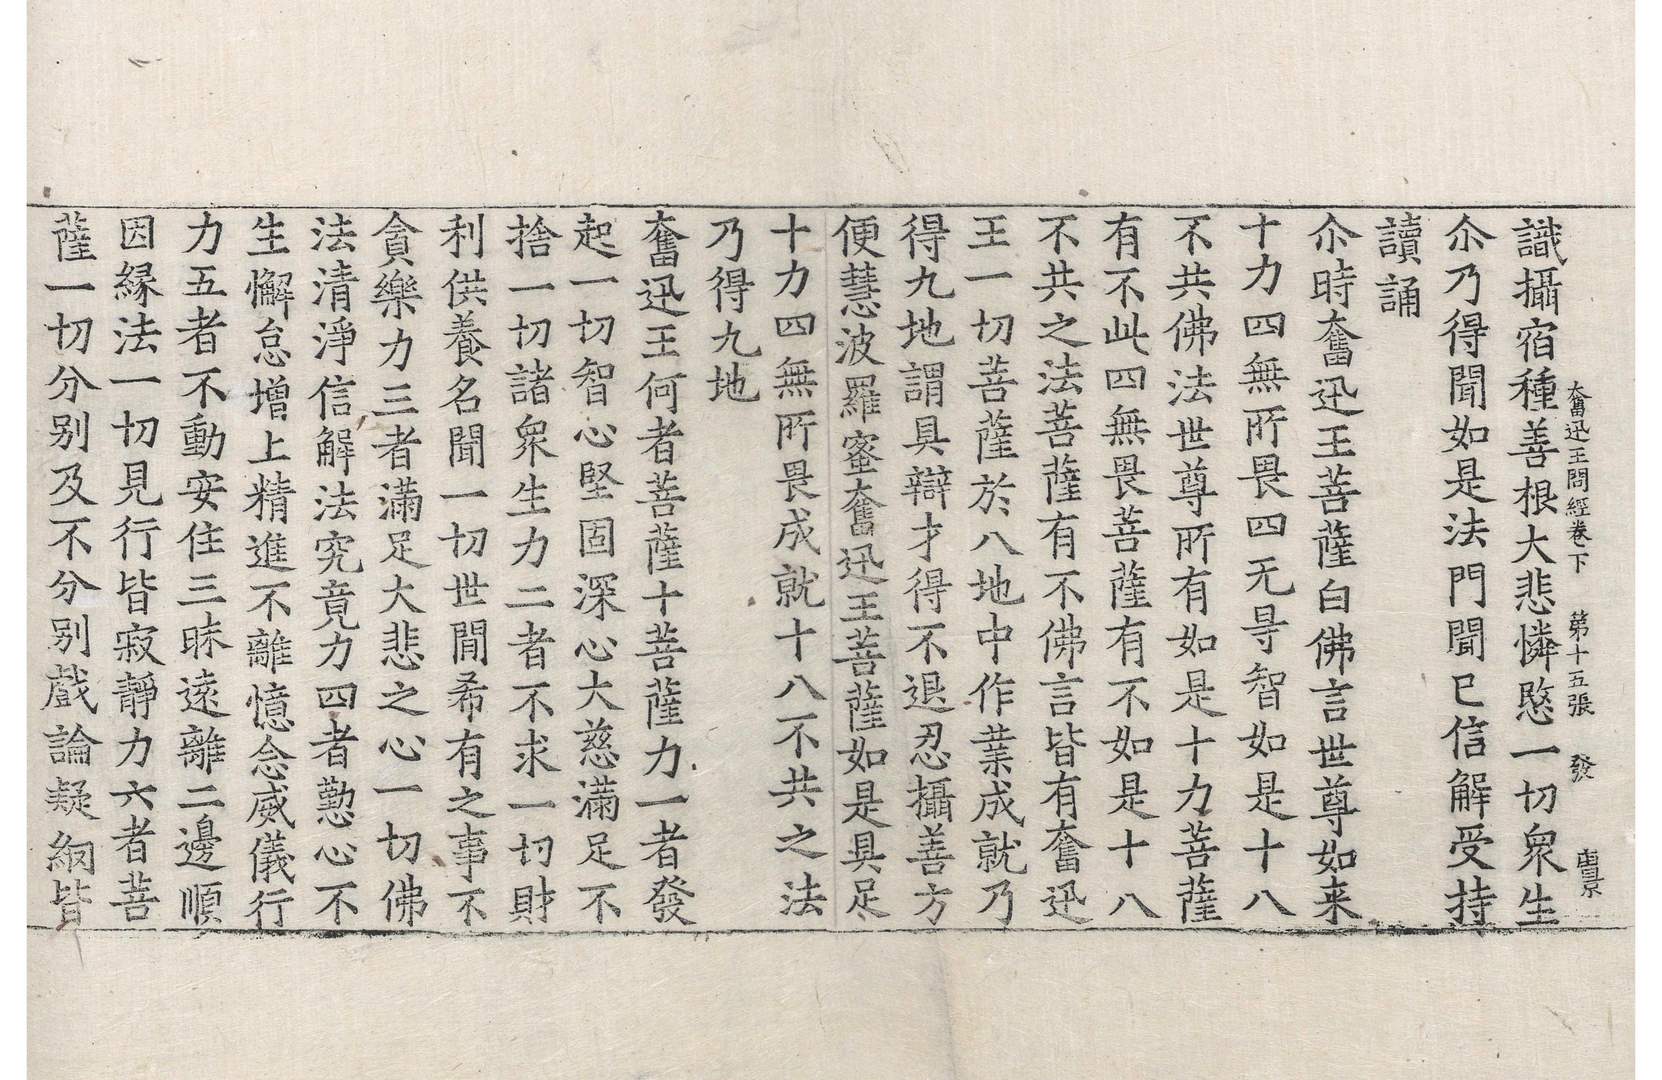 奮迅王問經卷下 第十五張 發
識攝宿種善根大悲憐愍一切衆生
尒乃得聞如是法門聞已信解受持
讀誦
尒時奮迅王菩薩白佛言世尊如来
十力四無所畏四无㝵智如是十八
不共佛法世尊所有如是十力菩薩
有不此四無畏菩薩有不如是十八
不共之法菩薩有不佛言皆有奮迅
王一切菩薩於八地中作業成就乃
得九地謂具辯才得不退忍攝善方
便慧波羅蜜奮迅王菩薩如是具足
十力四無所畏成就十八不共之法
乃得九地
奮迅王何者菩薩十菩薩力一者發
起一切智心堅固深心大慈滿足不
捨一切諸衆生力二者不求一切財
利供養名聞一切世間希有之事不
貪樂力三者滿足大悲之心一切佛
法清淨信解法究竟力四者懃心不
生懈怠增上精進不離憶念威儀行
力五者不動安住三昧遠離二邊順
因緣法一切見行皆寂靜力六者菩
薩一切分別及不分別戲論疑網皆